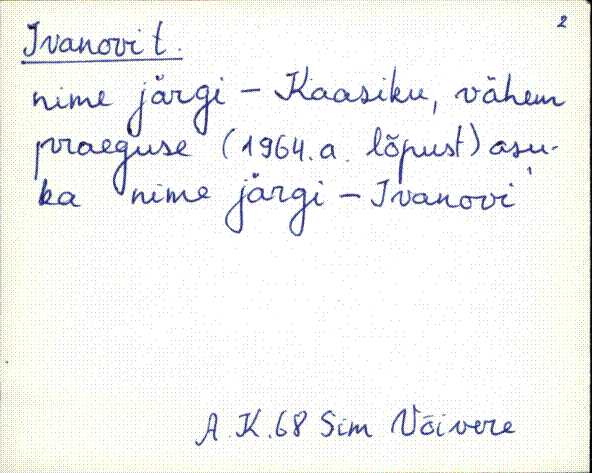 2
Ivanovi t.
nime järgi – Kaasiku, vähem
praeguse (1964. a. lõpust) asu-
ka nime järgi – Ivanovi'
A.K.68 Sim Võivere